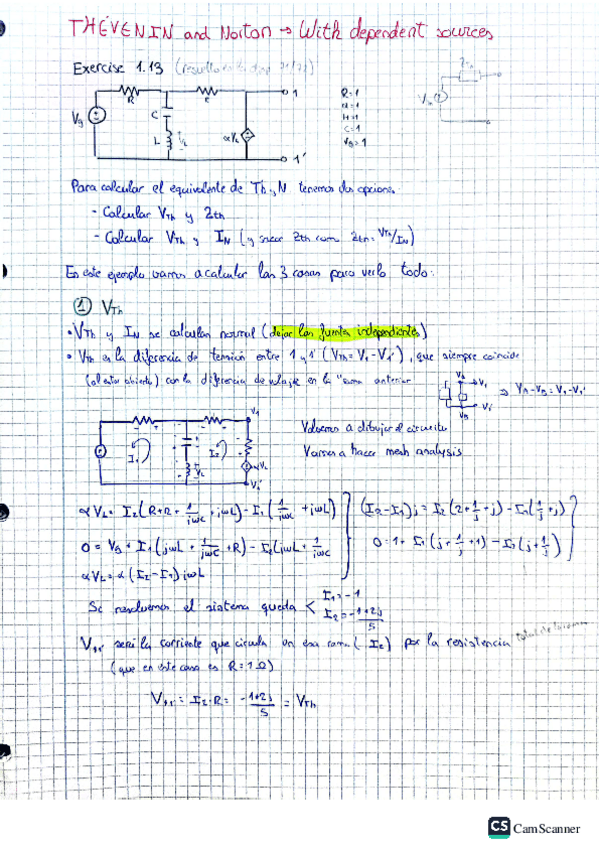 THÉVENIN and Norton → With dependent sources
Exercise 1.13
R
C
L
Vg
αVL
1
1'
R=1
C=1
Vg=1
Para calcular el equivalente de Th y N tenemos dos opciones.
- Calcular VTh y Zth
- Calcular VTh y IN (y sacar Zth com Zth = VTh/IN)
En este ejemplo vamos a calcular las 3 cosas para verlo todo.
① VTh
• VTh y IN se calculan normal (dejar las fuentes independientes)
• Vth es la diferencia de tensión entre 1 y 1' (VTh = V1 - V1'), que siempre coincide
(al estar abierto) con la diferencia de voltaje en la rama anterior
⇒ VA - VB = V1 - V1'
Volvemos a dibujar el circuito
Vamos a hacer mesh analysis
I1
I2
VL
αVL = I2(R+R+ 1/jωC + jωL) - I1(1/jωC + jωL)
(I2-I1)j = I2(2+1/j+j) - I1(1/j+j)
0 = Vg + I1(jωL + 1/jωC + R) - I2(jωL + 1/jωC
0 = 1 + I1(j+1/j+1) - I2(j+1/j)
αVL = α(I2-I1)jωL
Si resolvemos el sistema queda < I1 = -1
I2 = -1+2j/5
V11' será la corriente que circula en esa rama (I2) por la resistencia
(que en este caso es R=1Ω)
V11' = I2·R = -1+2j/5 = VTh
CS CamScanner